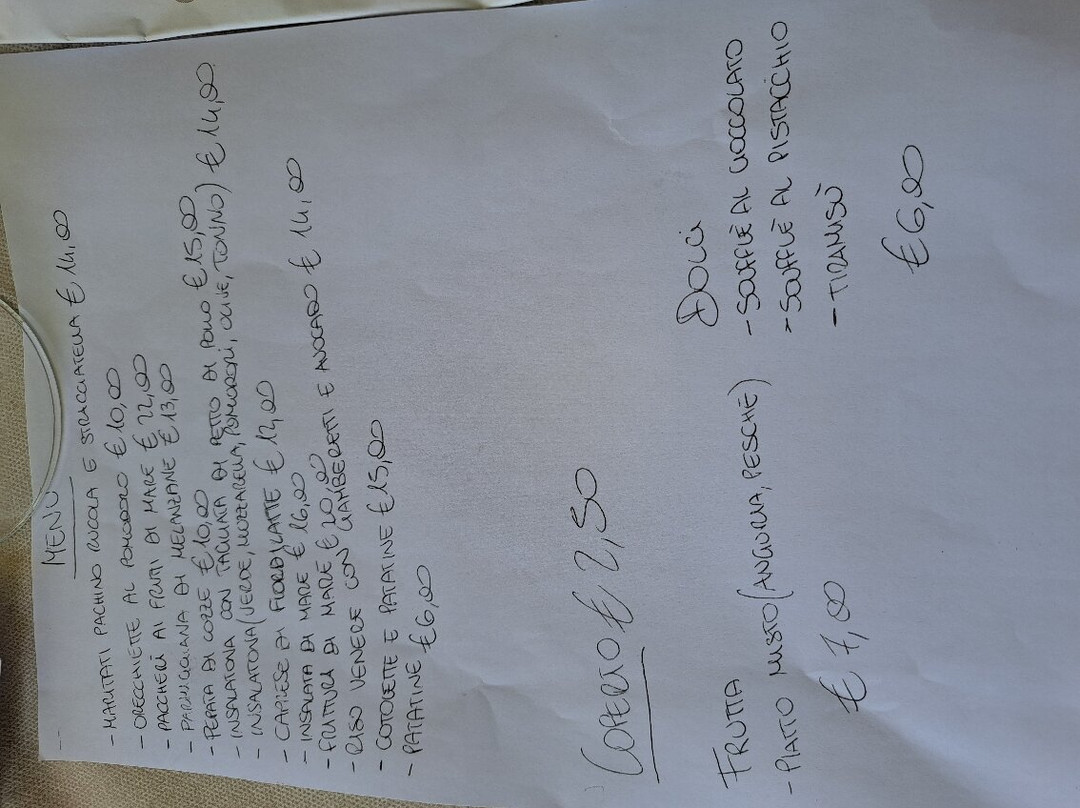 MENÙ
- MARITATI PACHINO RUCOLA E STRACCIATELLA € 14,00
- ORECCHIETTE AL POMODORO € 10,00
- PACCHERI AI FRUTTI DI MARE € 22,00
- PARMIGGIANA DI MELANZANE € 13,00
- PEPATA DI COZZE € 10,00
- INSALATONA CON TAGLIATA DI PETTO DI POLLO € 15,00
- INSALATONA (VERDE, MOZZARELLA, POMODORI, OLIVE, TONNO) € 14,00
- CAPRESE DI FIORDILATTE € 12,00
- INSALATA DI MARE € 16,00
- FRITTURA DI MARE € 20,00
- RISO VENERE CON GAMBERETTI E AVOCADO € 14,00
- COTOLETTE E PATATINE € 15,00
- PATATINE € 6,00
COPERTO € 2,50
FRUTTA
- PIATTO MISTO (ANGURIA, PESCHE)
€ 7,00
DOLCI
- SOUFFLÈ AL CIOCCOLATO
- SOUFFLÈ AL PISTACCHIO
- TIRAMISÙ
€ 6,00